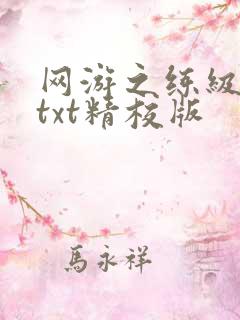 网游之练级
txt精校版
馬永祥